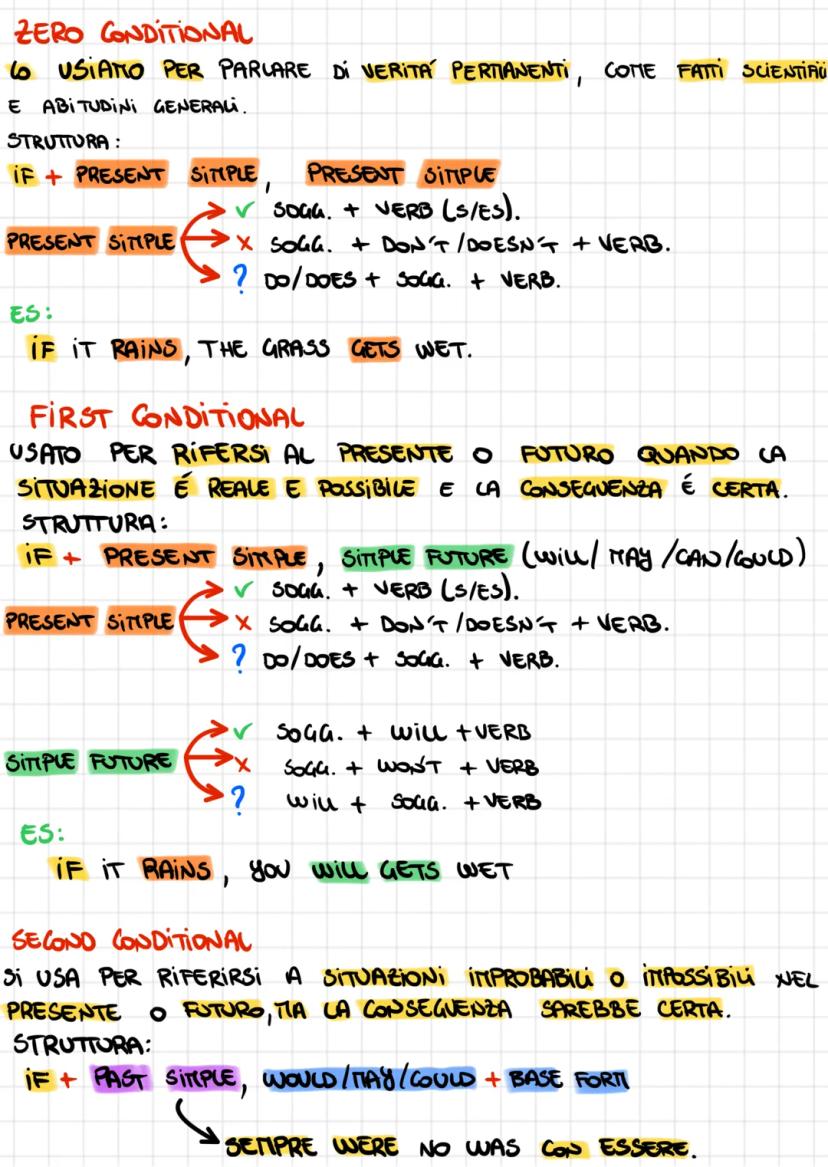 ZERO CONDITIONAL
LO USIAMO PER PARLARE Di VERITÀ PERMANENTI, COME FATTI SCIENTIFICI
E ABITUDINI GENERALI.
STRUTTURA:
IF + PRESENT SIMPLE, PRESENT SIMPLE
✓ SOGG. + VERB (S/ES).
PRESENT SIMPLE × SOGG. + DON'T/DOESN'T + VERB.
? DO/DOES + SOGG. + VERB.
ES:
IF IT RAINS, THE GRASS GETS WET.
FIRST CONDITIONAL
USATO PER RIFERSI AL PRESENTE O FUTURO QUANDO LA
SITUAZIONE É REALE E POSSIBILE E LA CONSEGUENZA É CERTA.
STRUTTURA:
IF + PRESENT SIMPLE, SIMPLE FUTURE (WILL/ MAY /CAN/COULD)
✓ SOGG. + VERB (S/ES).
PRESENT SIMPLE × SOGG. + DON'T/DOESN'T + VERB.
? DO/DOES + SOGG. + VERB.
✓ SOGG. + WILL + VERB
SIMPLE FUTURE × SOGG. + WON'T + VERB
? WILL + SOGG. + VERB
ES:
IF IT RAINS, YOU WILL GETS WET
SECOND CONDITIONAL
SI USA PER RIFERIRSI A SITUAZIONI IMPROBABILI O IMPOSSIBILI NEL
PRESENTE O FUTURO, MA LA CONSEGUENZA SAREBBE CERTA.
STRUTTURA:
IF + PAST SIMPLE, WOULD/MAY/COULD + BASE FORM
SEMPRE WERE NO WAS CON ESSERE.